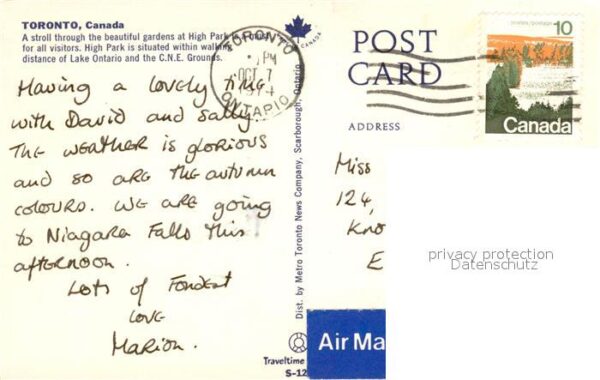 TORONTO, Canada
A stroll through the beautiful gardens at High Park is a must
for all visitors. High Park is situated within walking
distance of Lake Ontario and the C.N.E. Grounds.
Having a lovely time
with David and Sally.
The weather is glorious
and so are the autumn
colours. We are going
to Niagara Falls this
afternoon.
Lots of Fondest
Love
Marion.
TORONTO
PM
OCT 7
ONTARIO
CANADA
Dist. by Metro Toronto News Company, Scarborough, Ontario
Traveltime
S-12
POST
CARD
ADDRESS
postes/postage
10
Canada
Miss
124,
Kno
E
privacy protection
Datenschutz
Air Ma